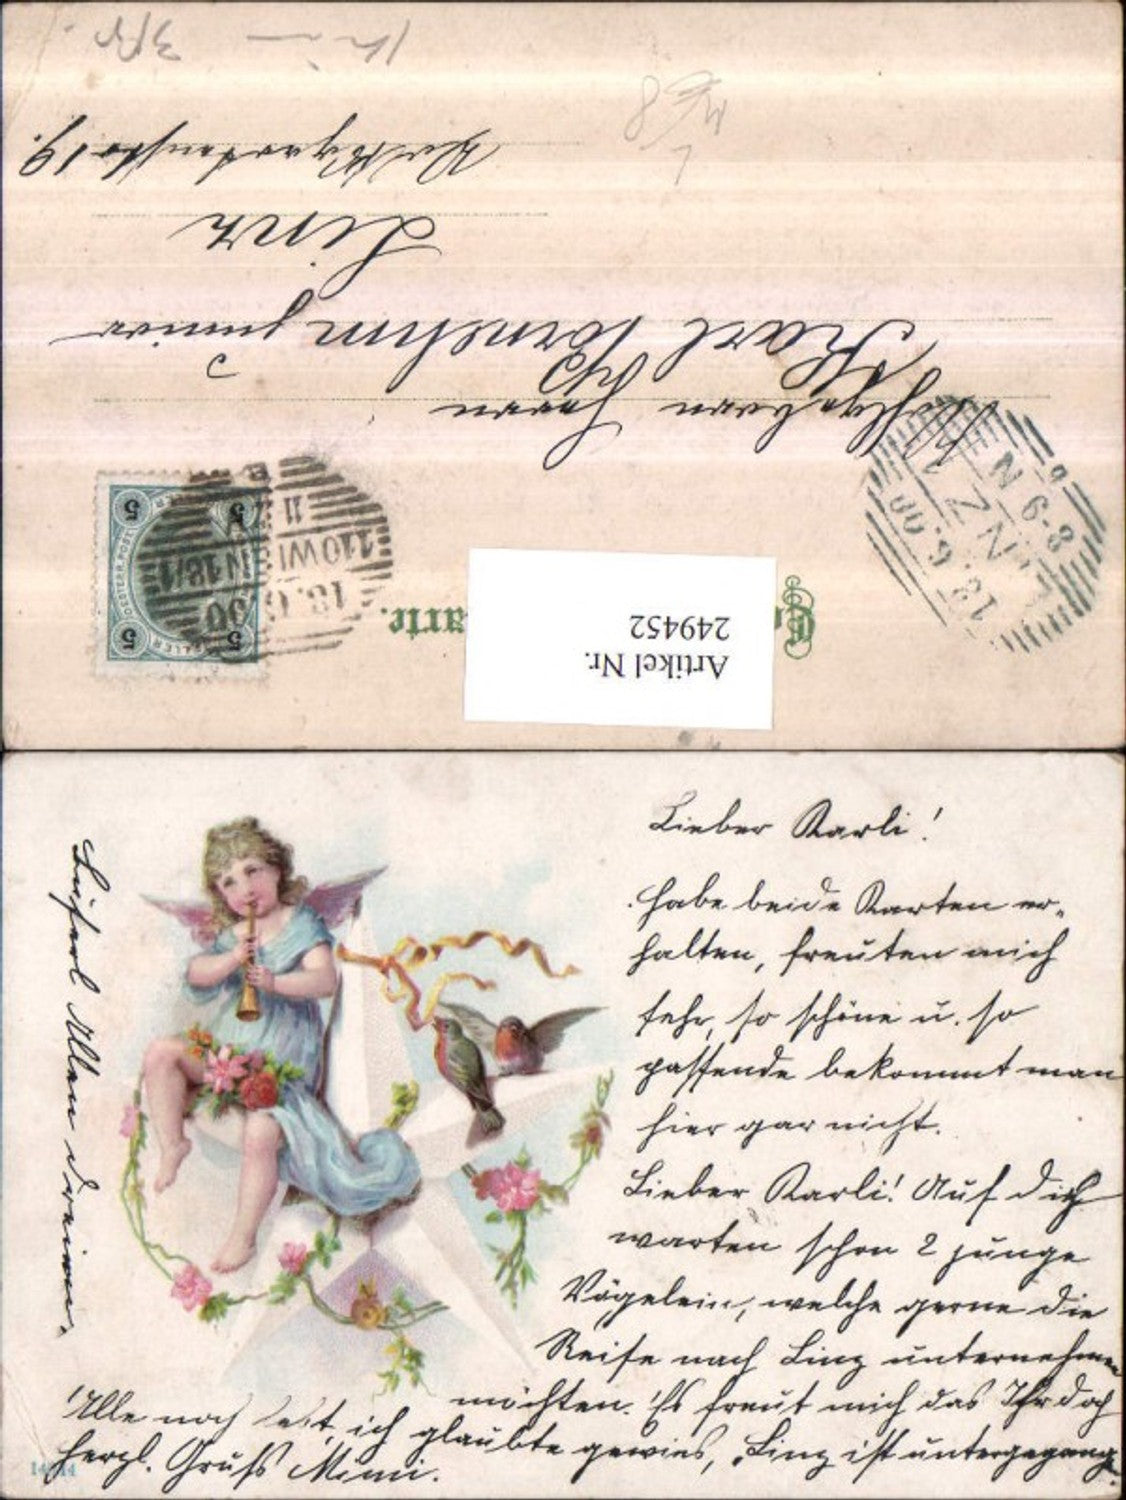 Artikel Nr.
249452
Wohlgeboren Herrn
Karl junior
Linz
19.
5 5
5 5
110 WIEN 18/1
18. 6. 00
11
LINZ
18. 6. 00
8-9 N
Lieber Karli!
Habe beide Karten er-
halten, freuten mich
sehr, so schöne u. so
passende bekommt man
hier gar nicht.
Lieber Karli! Auf dich
warten schon 2 junge
Vögelein, welche gerne die
Reise nach Linz unternehmen
möchten. Es freut mich das Ihr doch
Alle noch lebt, ich glaubte gewies, Linz ist untergegang.
herzl. Gruß Mimi.
Allen